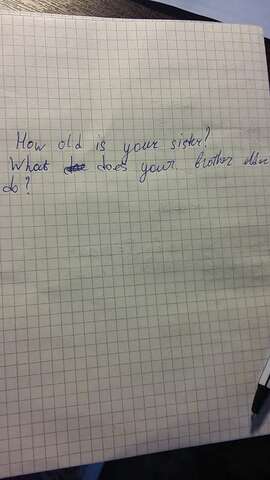 How old is your sister?
What does your brother elder
do?